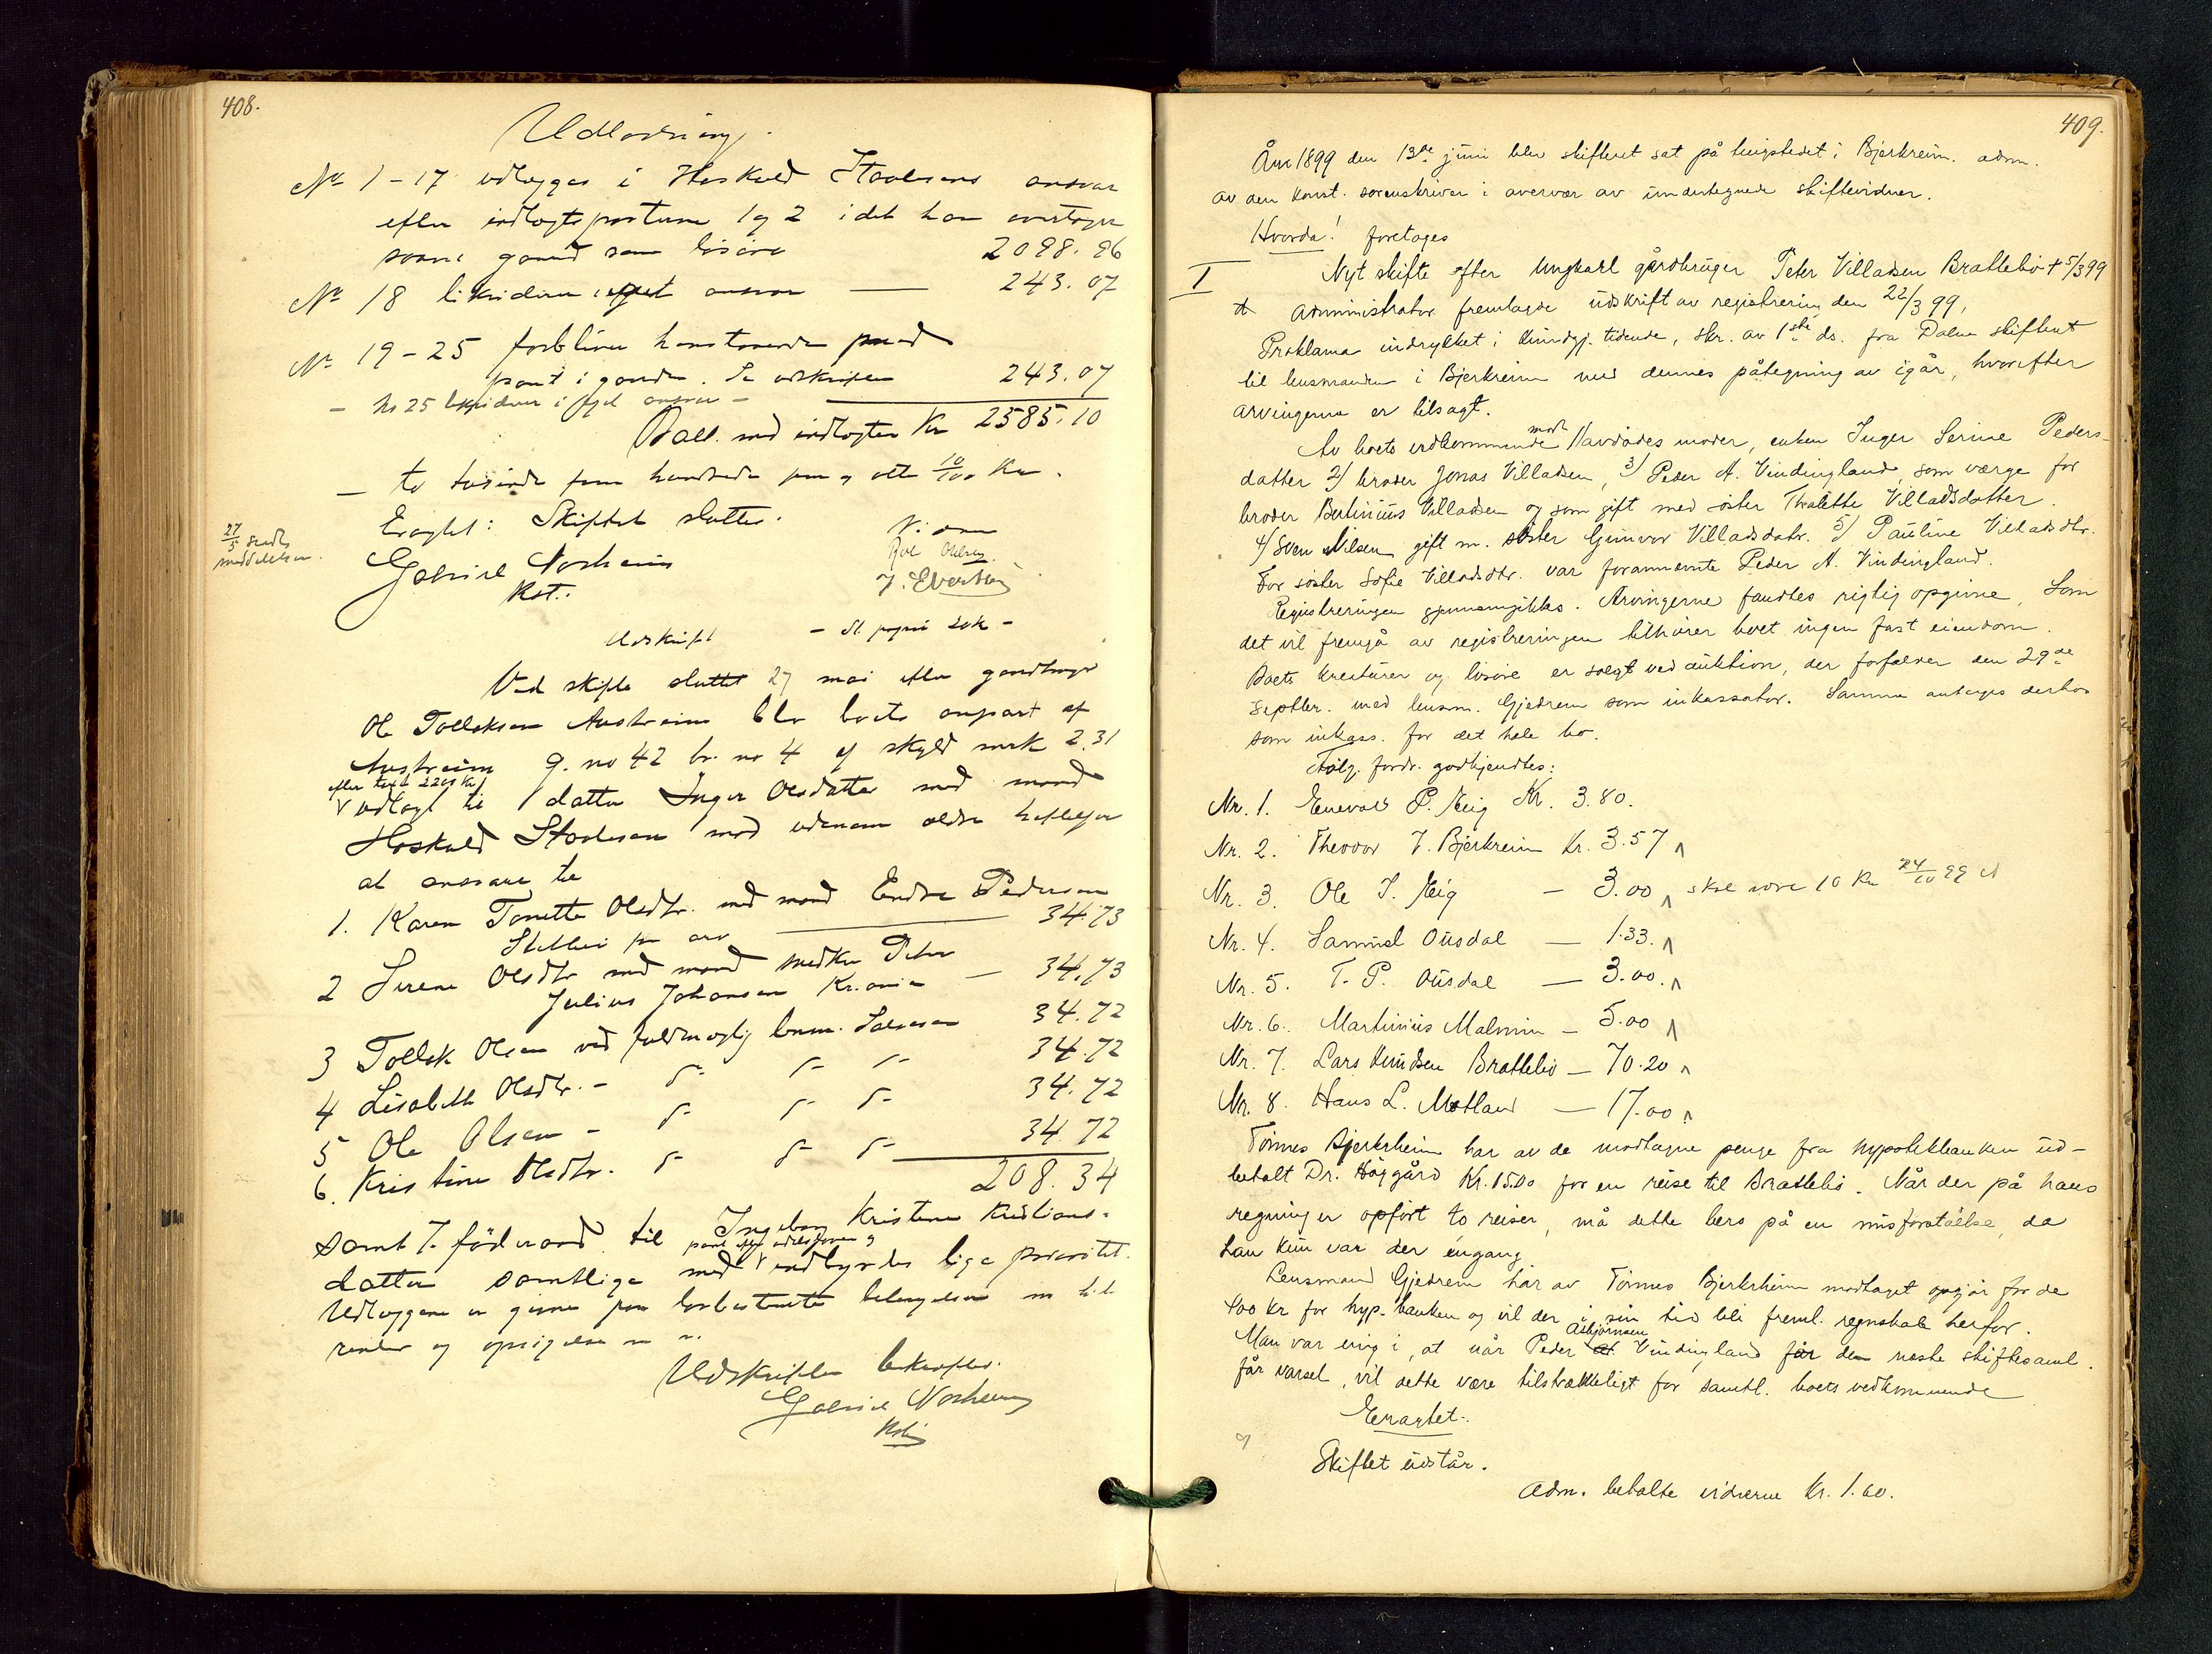 408.
Udlodning.
No 1-17 udlægges i Hoskuld Staalesens ansvar
efter indtægtsposterne 1 og 2 idet han overtager
saavel gaard som løsøre 2098.96
No 18 likvideres i eget ansvar — 243.07
No 19-25 forbliver henstaaende mod
pant i gaarden. Se udskriften
- No 25 likvideres i eget ansvar - 243.07
Ball. med indtægten Kr 2585.10
- to tusinde fem hundrede fem og otti 10/100 Kr.
Eragtet: Skiftet slutter.
27/5 sendt
meddelelse.
Gabriel Norheim
Kst.
Vidner
J. Evertsen
Udskrift
Ved skifte sluttet 27 mai efter gaardbruger
Ole Tolleksen Austreim blev boets anpart af
Austreim g. no 42 br. no 4 af skyld mark 2.31
efter taxt 2205 Kr
udlagt til datter Inger Olsdatter med mand
Hoskuld Staalesen mod udenom ældre heftelser
at ansvare til
1. Karen Tonette Olsdtr. med mand Endre Pedersen
for arv — 34.73
2 Serene Olsdtr med mand snedker Peter
Julius Johansen Kr.ania — 34.73
3 Tollek Olsen ved fuldmægtig lensm. Salvesen 34.72
4 Lisabeth Olsdtr. - 34.72
5 Ole Olsen - 34.72
6. Kristine Olsdtr. 34.72
208.34
samt 7. føderaad til Ingeborg Kristine Kristians-
datter samtlige med indbyrdes lige prioritet.
Udlæggene er givne paa lovbestemte betingelser m. h. t.
renter og opsigelse m. v.
Udskriften bekræftes.
Gabriel Norheim
Kst.
409.
År 1899 den 13de juni blev skifteret sat på tingstedet i Bjerkreim. adm.
av den konst. sorenskriver i overvær av undertegnede skiftevidner.
Hvorda! foretoges
I Nyt skifte efter Ungkarl gårdbruger Peter Villadsen Brattebø + 5/3 99
Administrator fremlagde udskrift av registrering den 22/3 99,
Proklama indrykket i kundgj. tidende, skr. av 1ste ds. fra Dalene skifteret
til lensmanden i Bjerkreim med dennes påtegning av igår, hvorefter
arvingerne er tilsagt.
Av boets vedkommende mødt 1/ avdødes moder, enken Inger Serine Peders-
datter 2/ broder Jonas Villadsen, 3/ Peder A. Vindingland, som værge for
broder Bertinius Villadsen og som gift med søster Thalette Villadsdatter.
4/ Sven Nilsen gift m. søster Gunvor Villadsdatr. 5/ Pauline Villadsdtr.
For søster Sofie Villadsdtr. var forannævnte Peder A. Vindingland.
Registreringen gjennemgikkes. Arvingerne fandtes rigtig opgivne. Som
det vil fremgå av registreringen tilhører boet ingen fast eiendom.
Boets kreaturer og løsøre er solgt ved auktion, der forfalder den 29de
septbr. med lensm. Gjedrem som inkassator. Samme antages derhos
som inkass. for det hele bo.
Følg. fordr. godkjendtes:
Nr. 1. Enevald P. Eeig Kr. 3.80.
Nr. 2. Theodor T. Bjerkreim Kr. 3.57
Nr. 3. Ole T. Eeig — 3.00 skal være 10 Kr 24/10 99
Nr. 4. Samuel Ousdal — 1.33.
Nr. 5. T. P. Ousdal — 3.00.
Nr. 6. Martinius Malmin — 5.00
Nr. 7. Lars Knudsen Brattebø — 70.20
Nr. 8. Hans L. Motland — 17.00
Tønnes Bjerkrheim har av de modtagne penge fra hypotekbanken ud-
betalt Dr. Høygård Kr. 15.00 for en reise til Brattebø. Når der på hans
regning er opført to reiser, må dette bero på en misforståelse, da
han kun var der éngang.
Lensmand Gjedrem har av Tønnes Bjerkrheim modtaget opgjør for de
400 kr for hyp. banken og vil der i sin tid bli freml. regnskab herfor.
Man var enig i, at når Peder Asbjørnsen Vindingland får den næste skiftesaml.
får varsel, vil dette være tilstrækkeligt for samtl. boets vedkommende
Eragtet:
Skiftet udstår.
Adm. betalte vidnerne Kr. 1.60.